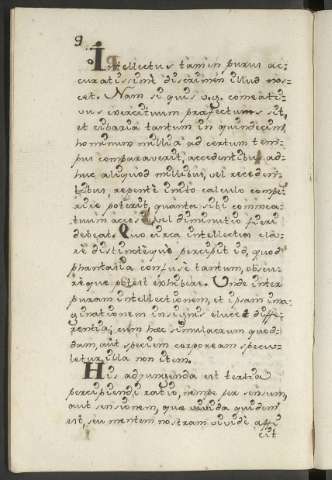 9
Intellectus tamen purus ac=
curatissimè discrimen illud nos=
cet. Nam si quis v.g. comeati=
bus exercituum præfectus sit,
et cibaria tantum in quindecim
hominum millia ad certum tem=
pus comparaverit, accedentibus ad=
huc aliquod millibus, vel receden=
tibus, repente inito calculo compe=
rire poterit, quanta sibi commea=
tuum accessio vel diminutio fieri
debeat. Quo circa intellectio cla=
rè distinctèque percipit id, quod
phantasia confuse tantum, obscu=
rèque potest exhibere. Unde inter
puram intellectionem, et ipsam ima=
ginationem insignis elucet diffe=
rentia; cum hæc simulacrum quod=
dam, aut speciem corpoream specu=
letur, illa non item.
His adjungenda est tertia
percipiendi ratio, nempe per sensum,
aut sensionem, quæ quidem
est, seu mentem nostram vividè affi
cit